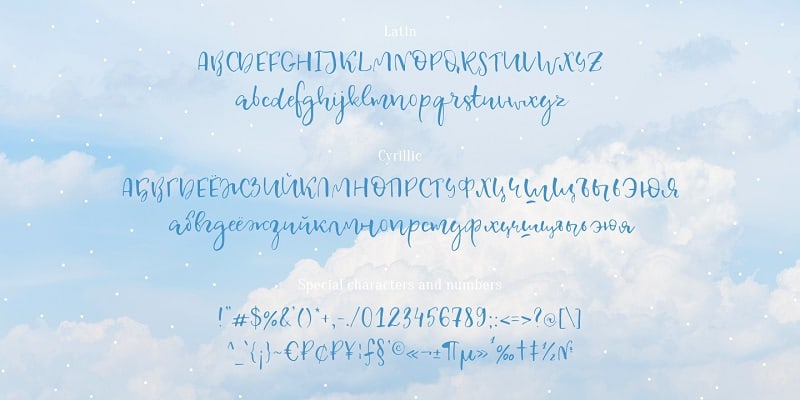 Latin
ABCDEFGHIJKLMNOPQRSTUVWXYZ
abcdefghijklmnopqrstuvwxyz
Cyrillic
АБВГДЕЁЖЗИЙКЛМНОПРСТУФХЦЧШЩЪЫЬЭЮЯ
абвгдеёжзийклмнопрстуфхцчшщъыьэюя
Special characters and numbers
!"#$%&'()*+,-./0123456789;:<=>?@[\]
^_`{¡}~€₽₵₽¥¦ƒ§°©«¬±¶µ»¹‰†‡½№